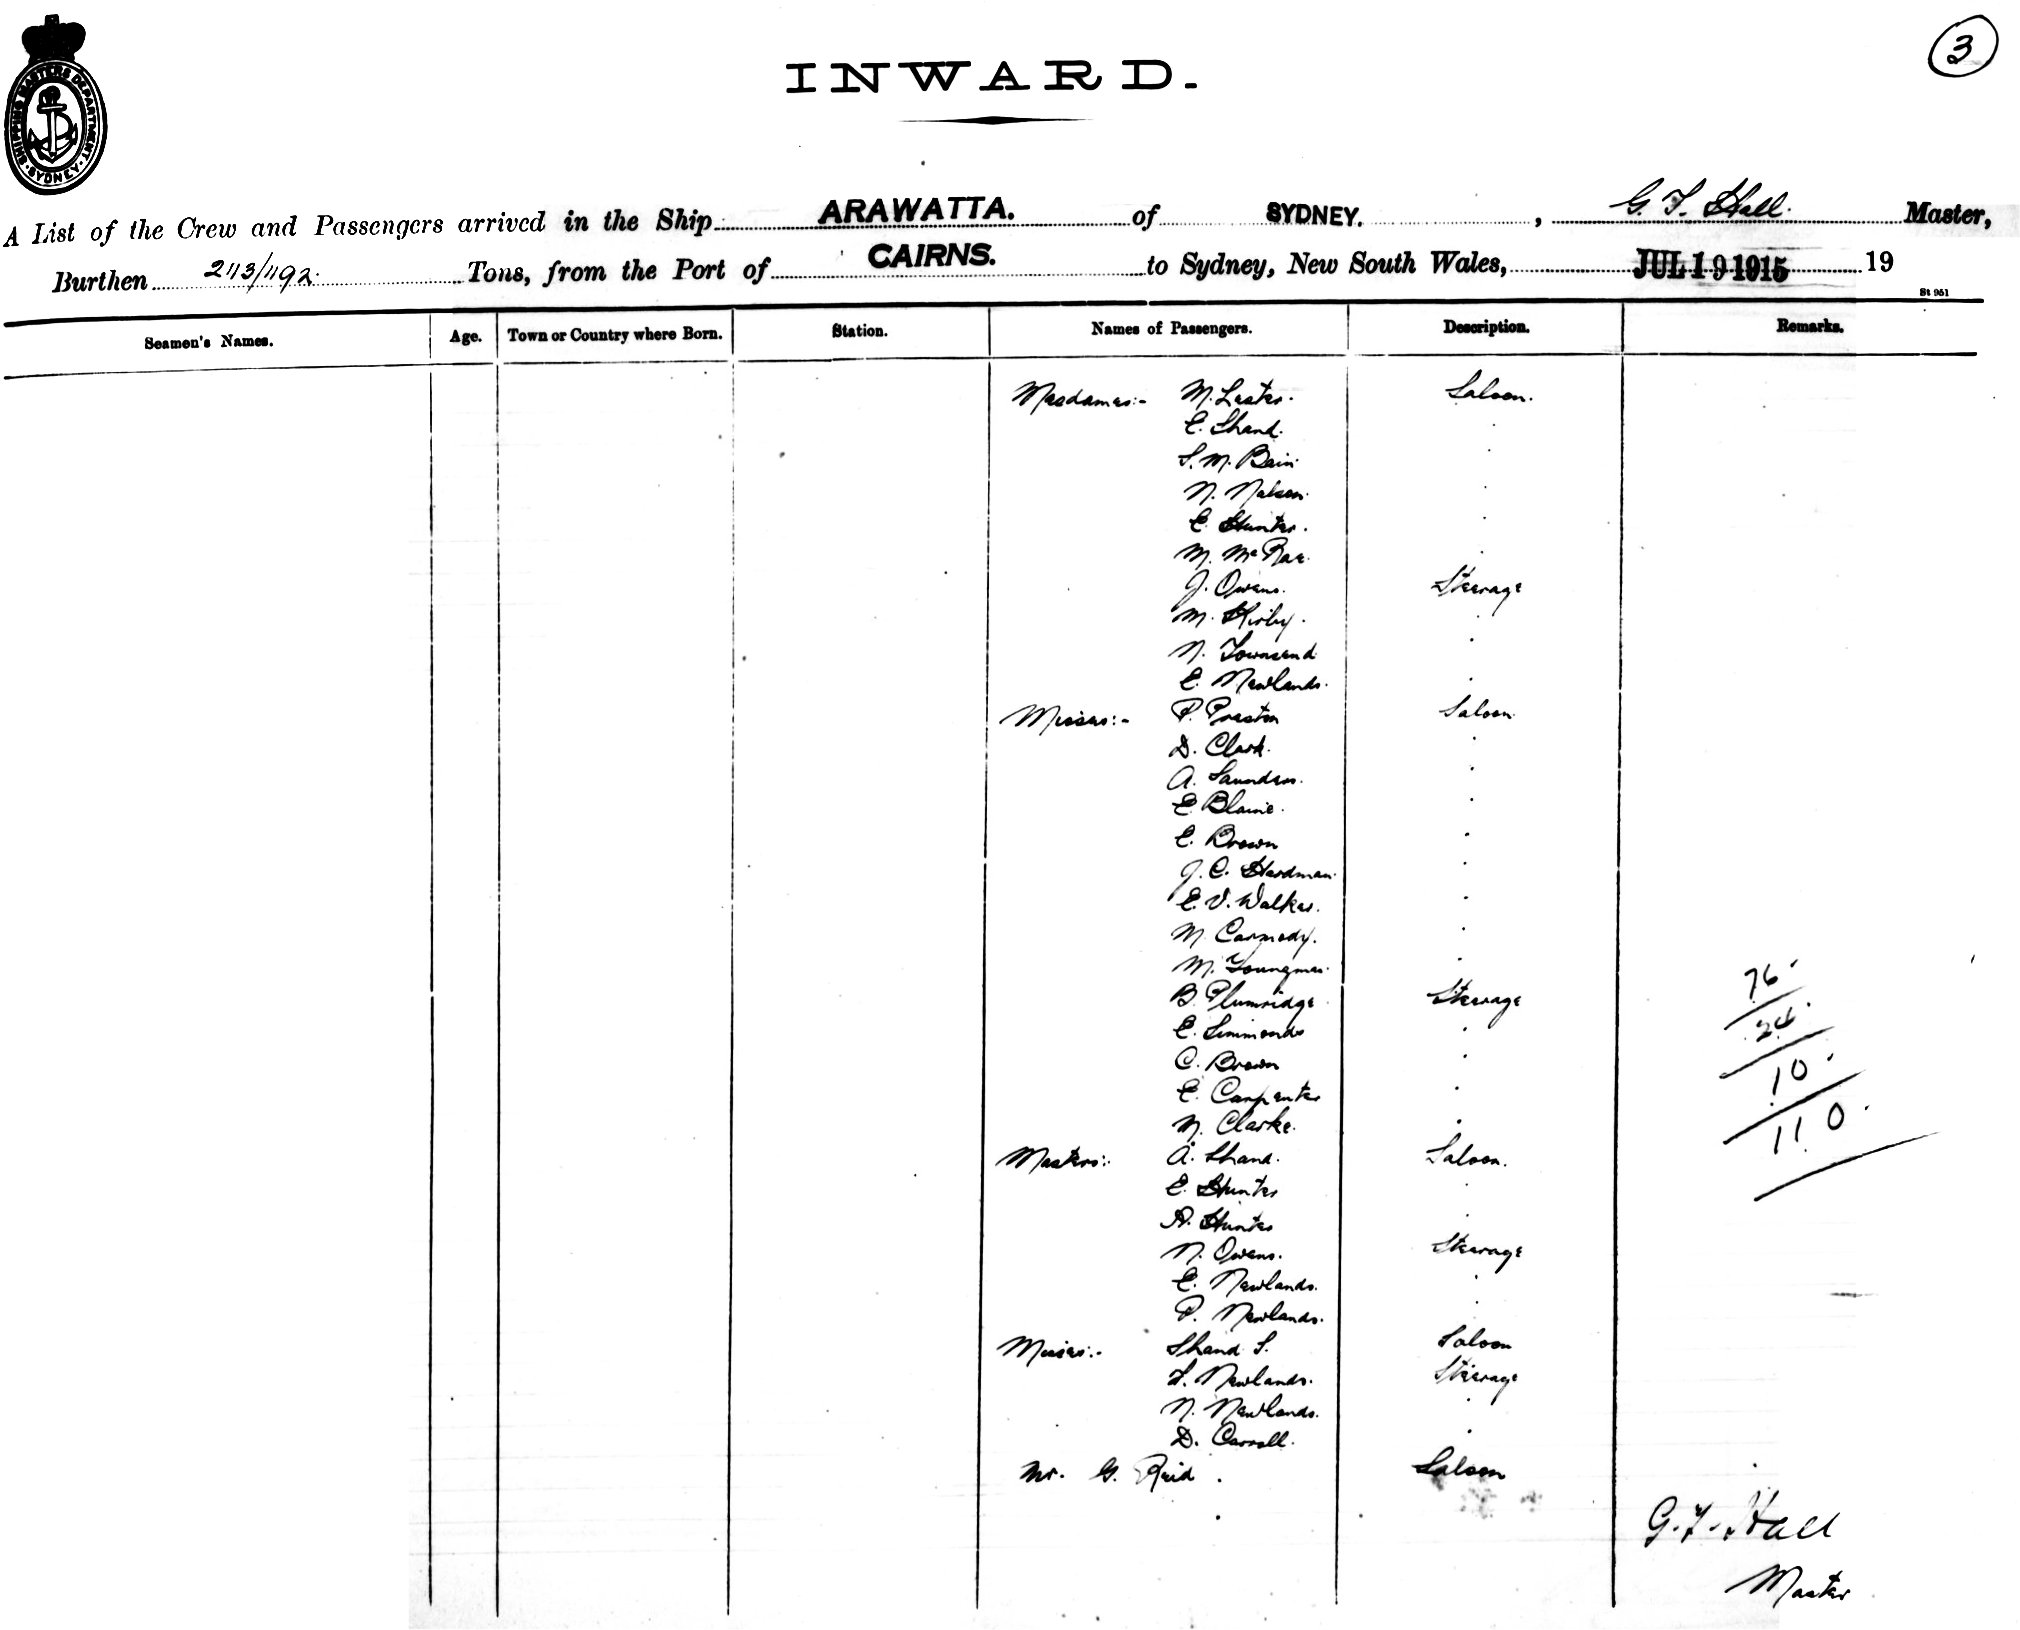 SHIPPING MASTERS DEPARTMENT · SYDNEY ·
3
INWARD.
A List of the Crew and Passengers arrived in the Ship ARAWATTA. of SYDNEY. , G. F. Hall. Master,
Burthen 2113/1192. Tons, from the Port of CAIRNS. to Sydney, New South Wales, JUL 19 1915 19
St 951
Seamen's Names. Age. Town or Country where Born. Station. Names of Passengers. Description. Remarks.
Mesdames:- M. Lester. Saloon.
E. Shand.
S. M. Bain
N. Nelson.
E. Hunter.
M. McRae.
J. Owens. Steerage
M. Kirby.
N. Townsend
E. Newlands.
Misses:- P. Preston Saloon
D. Clark.
A. Saunders.
E. Blaine.
E. Brown
J. C. Hardman.
E. V. Walker.
M. Carmody.
M. Youngman.
76.
B. Plumridge Steerage
24.
E. Simmonds
C. Brown
10.
E. Carpenter
M. Clarke.
110.
Masters:- A. Shand. Saloon.
E. Hunter
A. Hunter
N. Owens. Steerage
E. Newlands.
P. Newlands.
Misses:- Shand S. Saloon
F. Newlands. Steerage
N. Newlands.
D. Carroll.
Mr. G. Reid. Saloon
G. F. Hall
Master